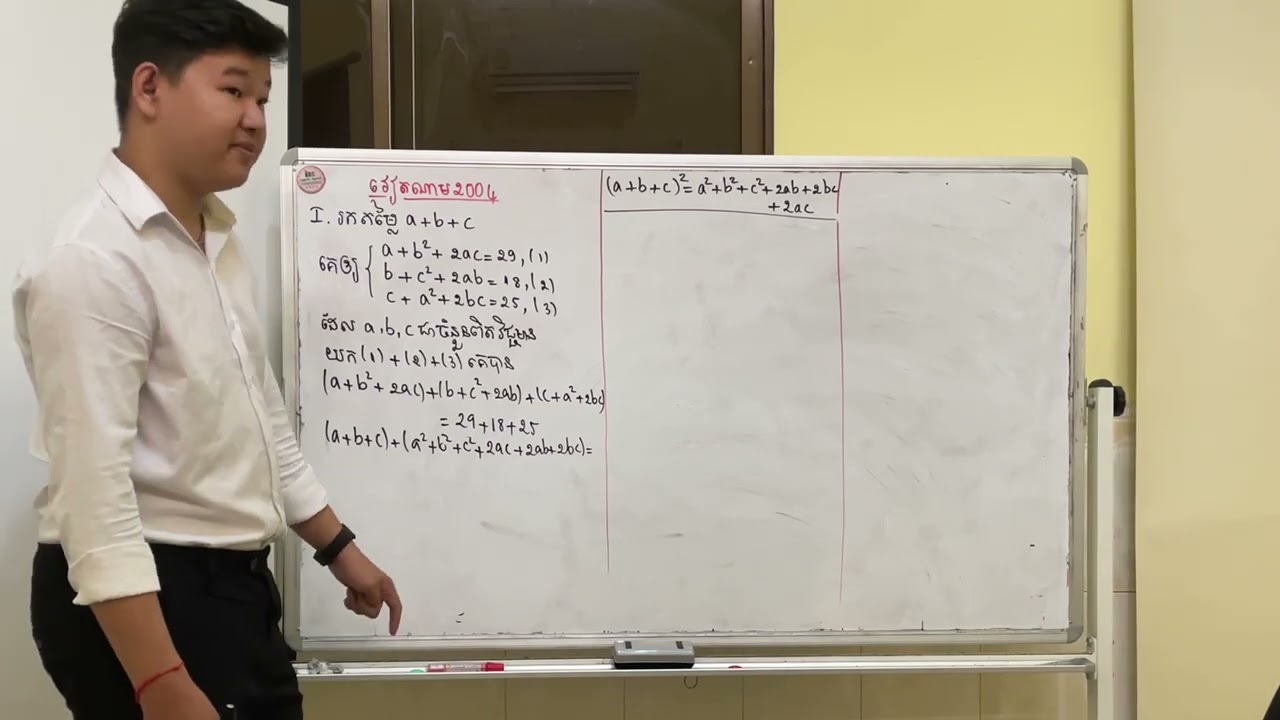 វៀតណាម 2004
I. រកតម្លៃ a+b+c
គេឲ្យ { a+b²+2ac=29, (1)
b+c²+2ab=18, (2)
c+a²+2bc=25, (3)
ដែល a,b,c ជាចំនួនពិតវិជ្ជមាន
យក (1)+(2)+(3) គេបាន
(a+b²+2ac)+(b+c²+2ab)+(c+a²+2bc)
=29+18+25
(a+b+c)+(a²+b²+c²+2ac+2ab+2bc)=
(a+b+c)²=a²+b²+c²+2ab+2bc
+2ac